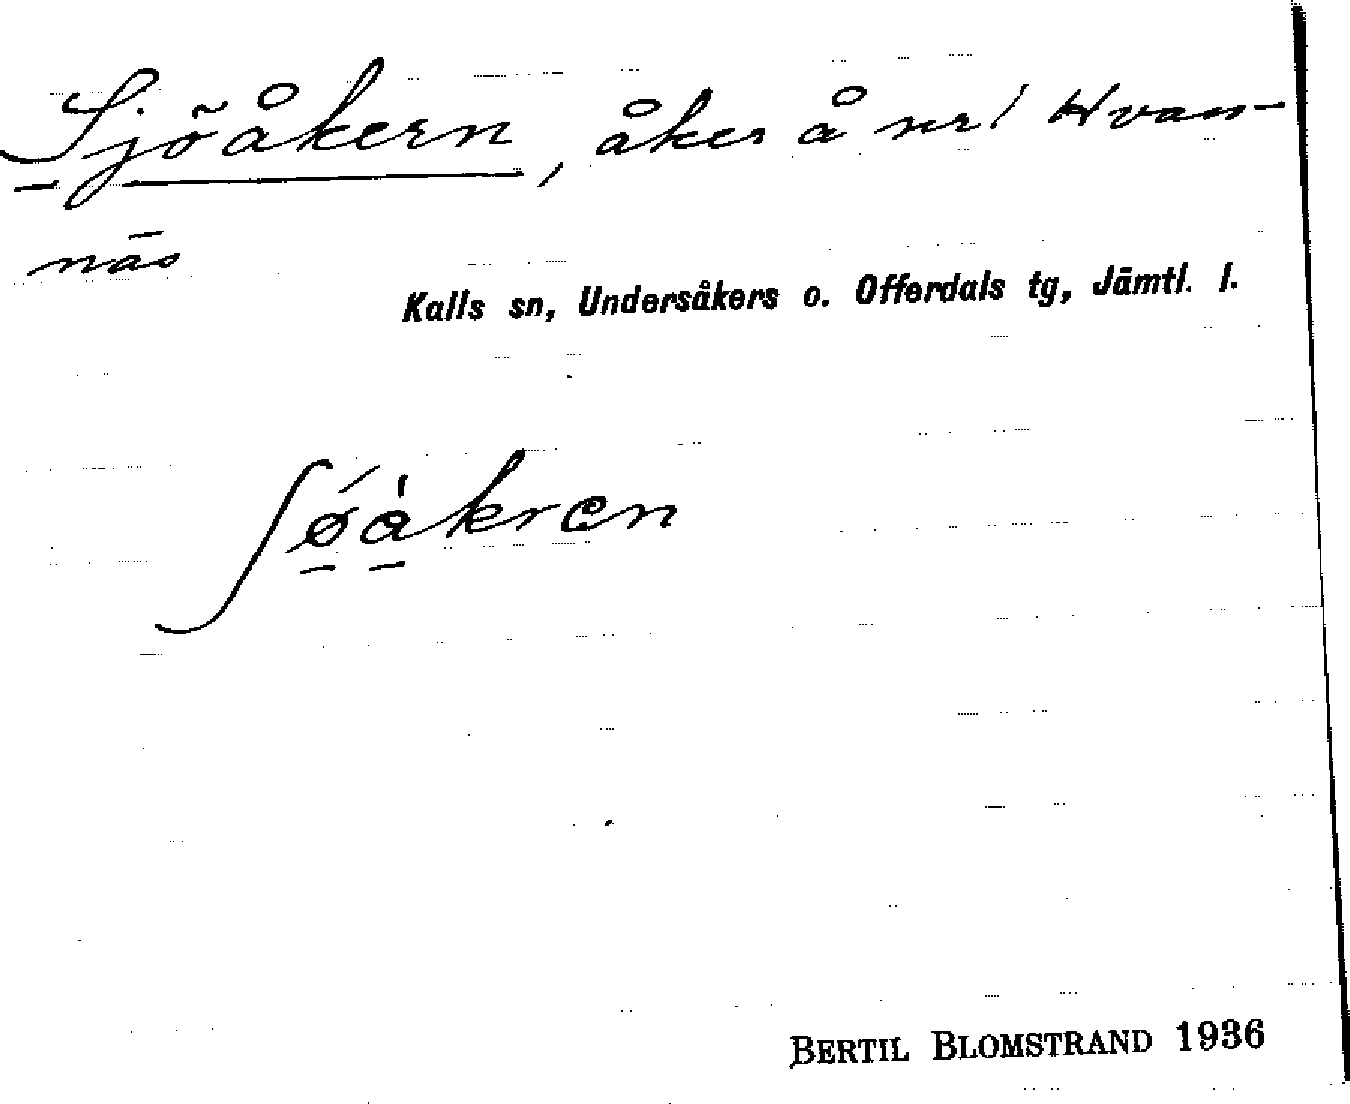 Sjöåkern, åker å nr 1 Hvass-
näs
Kalls sn, Undersåkers o. Offerdals tg, Jämtl. l.
ʃǿ̠a̠̍kren
BERTIL BLOMSTRAND 1936